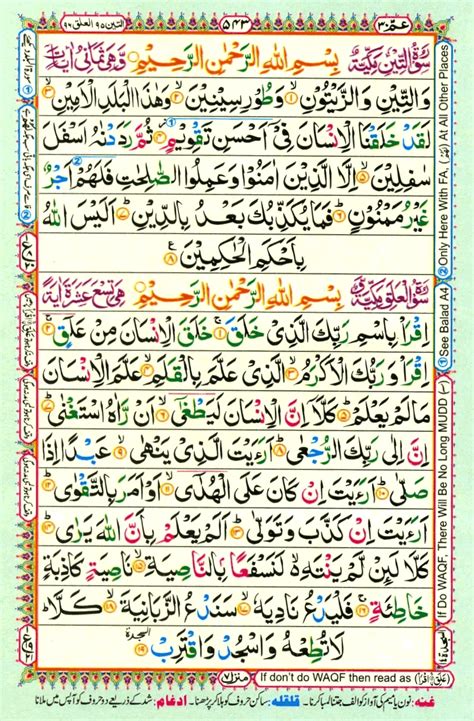 عمّ ٣٠
٥٤٣
التين ٩٥ العلق ٩٦
سُوْرَةُ التِّيْنِ مَكِّيَّةٌ بِسْمِ اللهِ الرَّحْمٰنِ الرَّحِيْمِ وَهِيَ ثَمَانِيْ اٰيَاتٍ
وَالتِّيْنِ وَالزَّيْتُوْنِ ۙ﴿۱﴾ وَطُوْرِ سِيْنِيْنَ ۙ﴿۲﴾ وَهٰذَا الْبَلَدِ الْاَمِيْنِ ۙ﴿۳﴾
لَقَدْ خَلَقْنَا الْاِنْسَانَ فِيْٓ اَحْسَنِ تَقْوِيْمٍ ۫﴿۴﴾ ثُمَّ رَدَدْنٰهُ اَسْفَلَ
سٰفِلِيْنَ ۙ﴿۵﴾ اِلَّا الَّذِيْنَ اٰمَنُوْا وَعَمِلُوا الصّٰلِحٰتِ فَلَهُمْ اَجْرٌ
غَيْرُ مَمْنُوْنٍ ؕ﴿۶﴾ فَمَا يُكَذِّبُكَ بَعْدُ بِالدِّيْنِ ؕ﴿۷﴾ اَلَيْسَ اللهُ
بِاَحْكَمِ الْحٰكِمِيْنَ ﴿۸﴾
سُوْرَةُ الْعَلَقِ مَكِّيَّةٌ بِسْمِ اللهِ الرَّحْمٰنِ الرَّحِيْمِ هِيَ تِسْعَ عَشْرَةَ اٰيَةً
اِقْرَاْ بِاسْمِ رَبِّكَ الَّذِيْ خَلَقَ ۚ﴿۱﴾ خَلَقَ الْاِنْسَانَ مِنْ عَلَقٍ ۚ﴿۲﴾
اِقْرَاْ وَرَبُّكَ الْاَكْرَمُ ۙ﴿۳﴾ الَّذِيْ عَلَّمَ بِالْقَلَمِ ۙ﴿۴﴾ عَلَّمَ الْاِنْسَانَ
مَا لَمْ يَعْلَمْ ؕ﴿۵﴾ كَلَّآ اِنَّ الْاِنْسَانَ لَيَطْغٰٓى ۙ﴿۶﴾ اَنْ رَّاٰهُ اسْتَغْنٰى ؕ﴿۷﴾
اِنَّ اِلٰى رَبِّكَ الرُّجْعٰى ؕ﴿۸﴾ اَرَءَيْتَ الَّذِيْ يَنْهٰى ۙ﴿۹﴾ عَبْدًا اِذَا
صَلّٰى ؕ﴿۱۰﴾ اَرَءَيْتَ اِنْ كَانَ عَلَى الْهُدٰٓى ۙ﴿۱۱﴾ اَوْ اَمَرَ بِالتَّقْوٰى ؕ﴿۱۲﴾
اَرَءَيْتَ اِنْ كَذَّبَ وَتَوَلّٰى ؕ﴿۱۳﴾ اَلَمْ يَعْلَمْ بِاَنَّ اللهَ يَرٰى ؕ﴿۱۴﴾
كَلَّا لَئِنْ لَّمْ يَنْتَهِ ۙ لَنَسْفَعًۢا بِالنَّاصِيَةِ ۙ﴿۱۵﴾ نَاصِيَةٍ كَاذِبَةٍ
خَاطِئَةٍ ۚ﴿۱۶﴾ فَلْيَدْعُ نَادِيَهٗ ۙ﴿۱۷﴾ سَنَدْعُ الزَّبَانِيَةَ ۙ﴿۱۸﴾ كَلَّا ؕ
لَا تُطِعْهُ وَاسْجُدْ وَاقْتَرِبْ ﴿۱۹﴾
السجدة
① See Balad A4 ② Only Here With FA, (ثُمَّ) At All Other Places
If Do WAQF, There Will Be No Long MUDD (~)
السجدة ١٤
منزل ٧
If don't do WAQF then read as (عَلَقٍ اقْرَاْ)
غنه: نون یا میم کی آواز کو الف جتنا لمبا کرنا۔ قلقله: ساکن حروف کو ہلا کر پڑھنا۔ ادغام: شد کے ذریعے دو حروف کو آپس میں ملانا